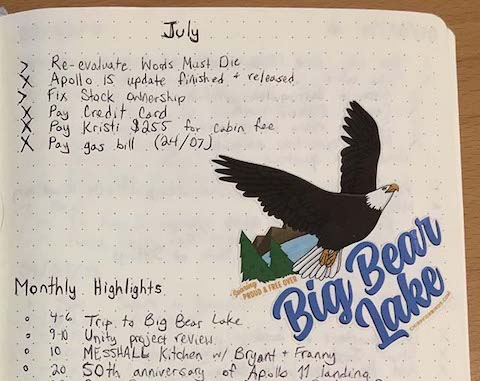 July
> Re-evaluate Words Must Die
X Apollo 15 update finished + released
> Fix Stock ownership
X Pay Credit Card
X Pay Kristi $255 for cabin fee
X Pay gas bill (24/07)
Soaring
PROUD & FREE OVER
Big Bear
Lake
Monthly Highlights
4-6 Trip to Big Bear Lake
9-10 Unity project review
10 MESSHALL Kitchen w/ Bryant + Franny
20 50th anniversary of Apollo 11 landing